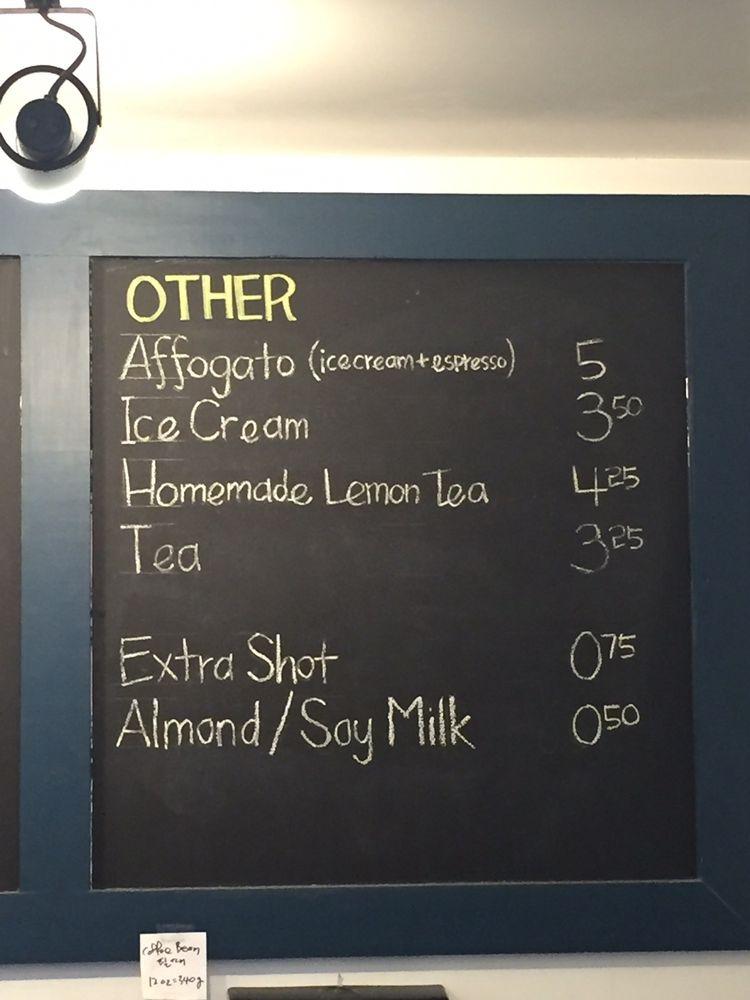 OTHER
Affogato (icecream+espresso) 5
Ice Cream 3 50
Homemade Lemon Tea 4 25
Tea 3 25
Extra Shot 0 75
Almond/Soy Milk 0 50
Coffee Bean
12oz=340g